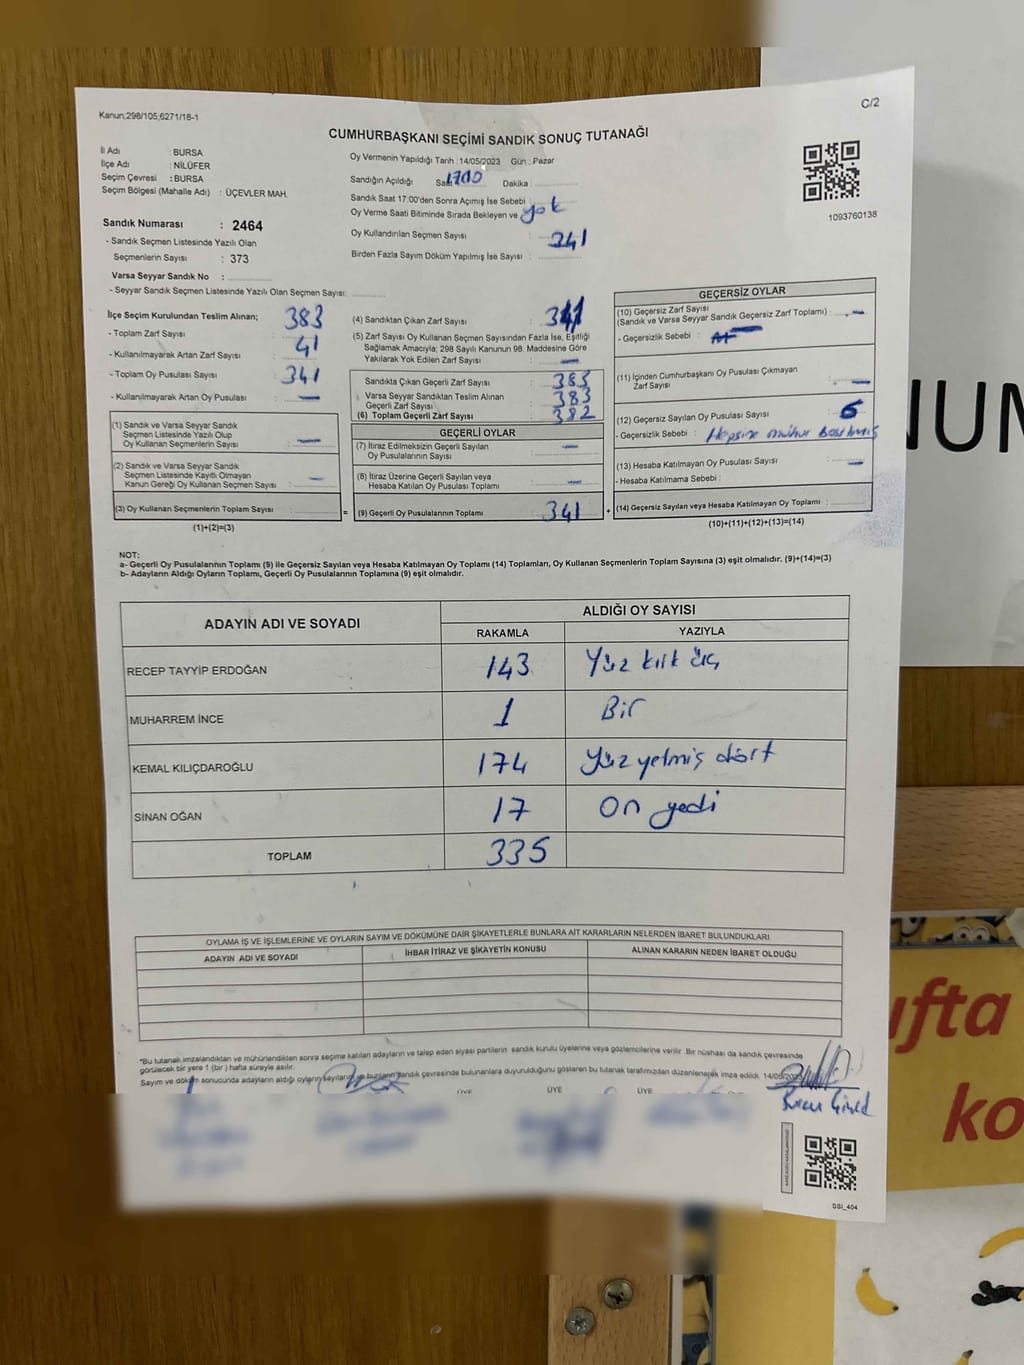 Kanun;298/105,6271/18-1
C/2
CUMHURBAŞKANI SEÇİMİ SANDIK SONUÇ TUTANAĞI
İl Adı : BURSA
İlçe Adı : NİLÜFER
Seçim Çevresi : BURSA
Seçim Bölgesi (Mahalle Adı) : ÜÇEVLER MAH.
Oy Vermenin Yapıldığı Tarih : 14/05/2023 Gün : Pazar
Sandığın Açıldığı Saat 1700 Dakika :
Sandık Saat 17:00'den Sonra Açımış İse Sebebi :
Oy Verme Saati Bitiminde Sırada Bekleyen ve yok
Oy Kullandırılan Seçmen Sayısı : 341
Birden Fazla Sayım Döküm Yapılmış İse Sayısı :
1093760138
Sandık Numarası : 2464
- Sandık Seçmen Listesinde Yazılı Olan
Seçmenlerin Sayısı : 373
Varsa Seyyar Sandık No :
- Seyyar Sandık Seçmen Listesinde Yazılı Olan Seçmen Sayısı:
İlçe Seçim Kurulundan Teslim Alınan; 383
- Toplam Zarf Sayısı : 41
- Kullanılmayarak Artan Zarf Sayısı
- Toplam Oy Pusulası Sayısı : 341
- Kullanılmayarak Artan Oy Pusulası : —
(1) Sandık ve Varsa Seyyar Sandık
Seçmen Listesinde Yazılı Olup
Oy Kullanan Seçmenlerin Sayısı : —
(2) Sandık ve Varsa Seyyar Sandık
Seçmen Listesinde Kayıtlı Olmayan
Kanun Gereği Oy Kullanan Seçmen Sayısı : —
(3) Oy Kullanan Seçmenlerin Toplam Sayısı :
(1)+(2)=(3)
=
(4) Sandıktan Çıkan Zarf Sayısı : 341
(5) Zarf Sayısı Oy Kullanan Seçmen Sayısından Fazla İse, Eşitliği
Sağlamak Amacıyla; 298 Sayılı Kanunun 98. Maddesine Göre
Yakılarak Yok Edilen Zarf Sayısı : —
Sandıkta Çıkan Geçerli Zarf Sayısı : 383
Varsa Seyyar Sandıktan Teslim Alınan
Geçerli Zarf Sayısı : 383
(6) Toplam Geçerli Zarf Sayısı : 382
GEÇERLİ OYLAR
(7) İtiraz Edilmeksizin Geçerli Sayılan
Oy Pusulalarının Sayısı : —
(8) İtiraz Üzerine Geçerli Sayılan veya
Hesaba Katılan Oy Pusulası Toplamı : —
(9) Geçerli Oy Pusulalarının Toplamı : 341
+
GEÇERSİZ OYLAR
(10) Geçersiz Zarf Sayısı
(Sandık ve Varsa Seyyar Sandık Geçersiz Zarf Toplamı) : —
- Geçersizlik Sebebi :
(11) İçinden Cumhurbaşkanı Oy Pusulası Çıkmayan
Zarf Sayısı : —
(12) Geçersiz Sayılan Oy Pusulası Sayısı : 6
- Geçersizlik Sebebi : Hepsine mühür basılmış
(13) Hesaba Katılmayan Oy Pusulası Sayısı : —
- Hesaba Katılmama Sebebi :
(14) Geçersiz Sayılan veya Hesaba Katılmayan Oy Toplamı :
(10)+(11)+(12)+(13)=(14)
NOT:
a- Geçerli Oy Pusulalarının Toplamı (9) ile Geçersiz Sayılan veya Hesaba Katılmayan Oy Toplamı (14) Toplamları, Oy Kullanan Seçmenlerin Toplam Sayısına (3) eşit olmalıdır. (9)+(14)=(3)
b- Adayların Aldığı Oyların Toplamı, Geçerli Oy Pusulalarının Toplamına (9) eşit olmalıdır.
ADAYIN ADI VE SOYADI ALDIĞI OY SAYISI
RAKAMLA YAZIYLA
RECEP TAYYİP ERDOĞAN 143 Yüz kırk üç
MUHARREM İNCE 1 Bir
KEMAL KILIÇDAROĞLU 174 Yüz yetmiş dört
SİNAN OĞAN 17 On yedi
TOPLAM 335
OYLAMA İŞ VE İŞLEMLERİNE VE OYLARIN SAYIM VE DÖKÜMÜNE DAİR ŞİKAYETLERLE BUNLARA AİT KARARLARIN NELERDEN İBARET BULUNDUKLARI
ADAYIN ADI VE SOYADI İHBAR İTİRAZ VE ŞİKAYETİN KONUSU ALINAN KARARIN NEDEN İBARET OLDUĞU
*Bu tutanak imzalandıktan ve mühürlendikten sonra seçime katılan adayların ve talep eden siyasi partilerin sandık kurulu üyelerine veya gözlemcilerine verilir. Bir nüshası da sandık çevresinde
görülecek bir yere 1 (bir ) hafta süreyle asılır.
Sayım ve döküm sonucunda adayların aldığı oyların sayılarını ve bunların sandık çevresinde bulunanlara duyurulduğunu gösteren bu tutanak tarafımızdan düzenlenerek imza edildi. 14/05/202
ÜYE ÜYE ÜYE
SSI_404
NUM
ıfta
ko